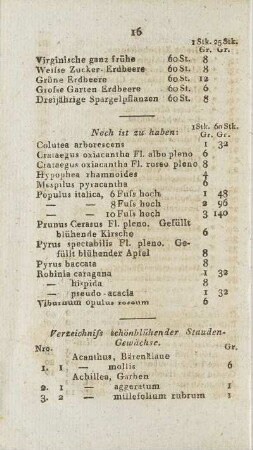 16
1 Stk. 25 Stk.
Gr. Gr.
Virginische ganz frühe 60 St. 8
Weiſse Zucker-Erdbeere 60 St. 8
Grüne Erdbeere 60 St. 12
Groſse Garten Erdbeere 60 St. 6
Dreijährige Spargelpflanzen 60 St. 8
Noch ist zu haben: 1 Stk. 60 Stk.
Gr. Gr.
Colutea arborescens 1 32
Crataegus oxiacantha Fl. albo pleno 6
Crataegus oxiacantha Fl. roseo pleno 8
Hypophea rhamnoides 4
Mespilus pyracantha 6
Populus italica, 6 Fuſs hoch 1 48
— — 8 Fuſs hoch 2 96
— — 10 Fuſs hoch 3 140
Prunus Cerasus Fl. pleno. Gefüllt
blühende Kirsche 6
Pyrus spectabilis Fl. pleno. Ge-
füllt blühender Apfel 8
Pyrus baccata 8
Robinia caragana 1 32
— hispida 8
— pseudo-acacia 1 32
Viburnum opulus roseum 6
Verzeichniſs schönblühender Stauden-
Gewächse.
Nro. Gr.
Acanthus, Bärenklaue
1. 1 — mollis 6
Achillea, Garben
2. 1 — aggeratum 1
3. 2 — millefolium rubrum 1